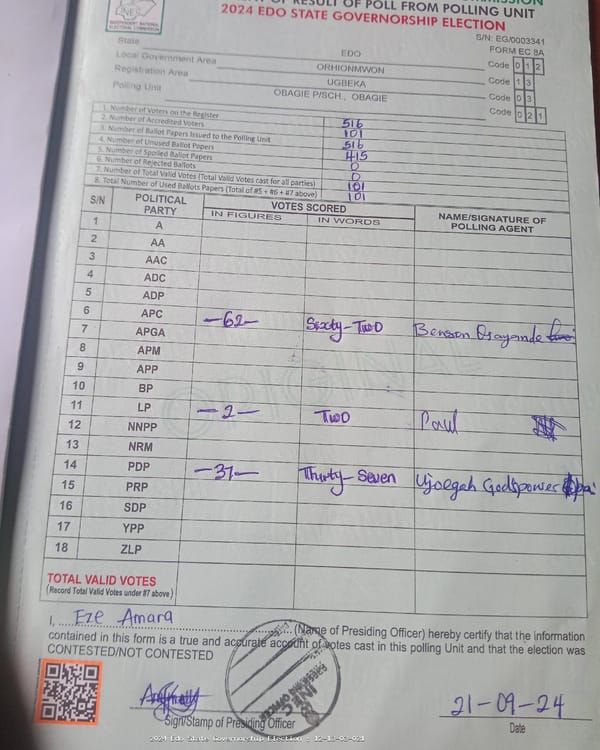 OF RESULT OF POLL FROM POLLING UNIT
2024 EDO STATE GOVERNORSHIP ELECTION
INEC
INDEPENDENT NATIONAL ELECTORAL COMMISSION
S/N: EG/0003341
FORM EC 8A
State EDO Code 0 1 2
Local Government Area ORHIONMWON Code 1 3
Registration Area UGBEKA Code 0 3
Polling Unit OBAGIE P/SCH., OBAGIE Code 0 2 1
1. Number of Voters on the Register 516
2. Number of Accredited Voters 101
3. Number of Ballot Papers Issued to the Polling Unit 516
4. Number of Unused Ballot Papers 415
5. Number of Spoiled Ballot Papers 0
6. Number of Rejected Ballots 0
7. Number of Total Valid Votes (Total Valid Votes cast for all parties) 101
8. Total Number of Used Ballots Papers (Total of #5 + #6 + #7 above) 101
S/N POLITICAL PARTY VOTES SCORED NAME/SIGNATURE OF POLLING AGENT
IN FIGURES IN WORDS
1 A
2 AA
3 AAC
4 ADC
5 ADP
6 APC -62- Sixty-Two Benson
7 APGA
8 APM
9 APP
10 BP
11 LP -2- TWO Paul
12 NNPP
13 NRM
14 PDP -37- Thirty-Seven Godspower
15 PRP
16 SDP
17 YPP
18 ZLP
TOTAL VALID VOTES
(Record Total Valid Votes under #7 above)
I, Eze Amara (Name of Presiding Officer) hereby certify that the information
contained in this form is a true and accurate account of votes cast in this polling Unit and that the election was
CONTESTED/NOT CONTESTED
21-09-24
Sign/Stamp of Presiding Officer Date
2024 Edo State Governorship Election - 12-13-03-021